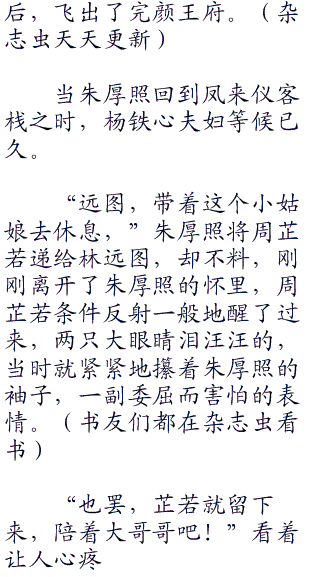 后，飞出了完颜王府。（杂
志虫天天更新）
当朱厚照回到凤来仪客
栈之时，杨铁心夫妇等候已
久。
“远图，带着这个小姑
娘去休息，”朱厚照将周芷
若递给林远图，却不料，刚
刚离开了朱厚照的怀里，周
芷若条件反射一般地醒了过
来，两只大眼睛泪汪汪的，
当时就紧紧地攥着朱厚照的
袖子，一副委屈而害怕的表
情。（书友们都在杂志虫看
书）
“也罢，芷若就留下
来，陪着大哥哥吧！”看着
让人心疼